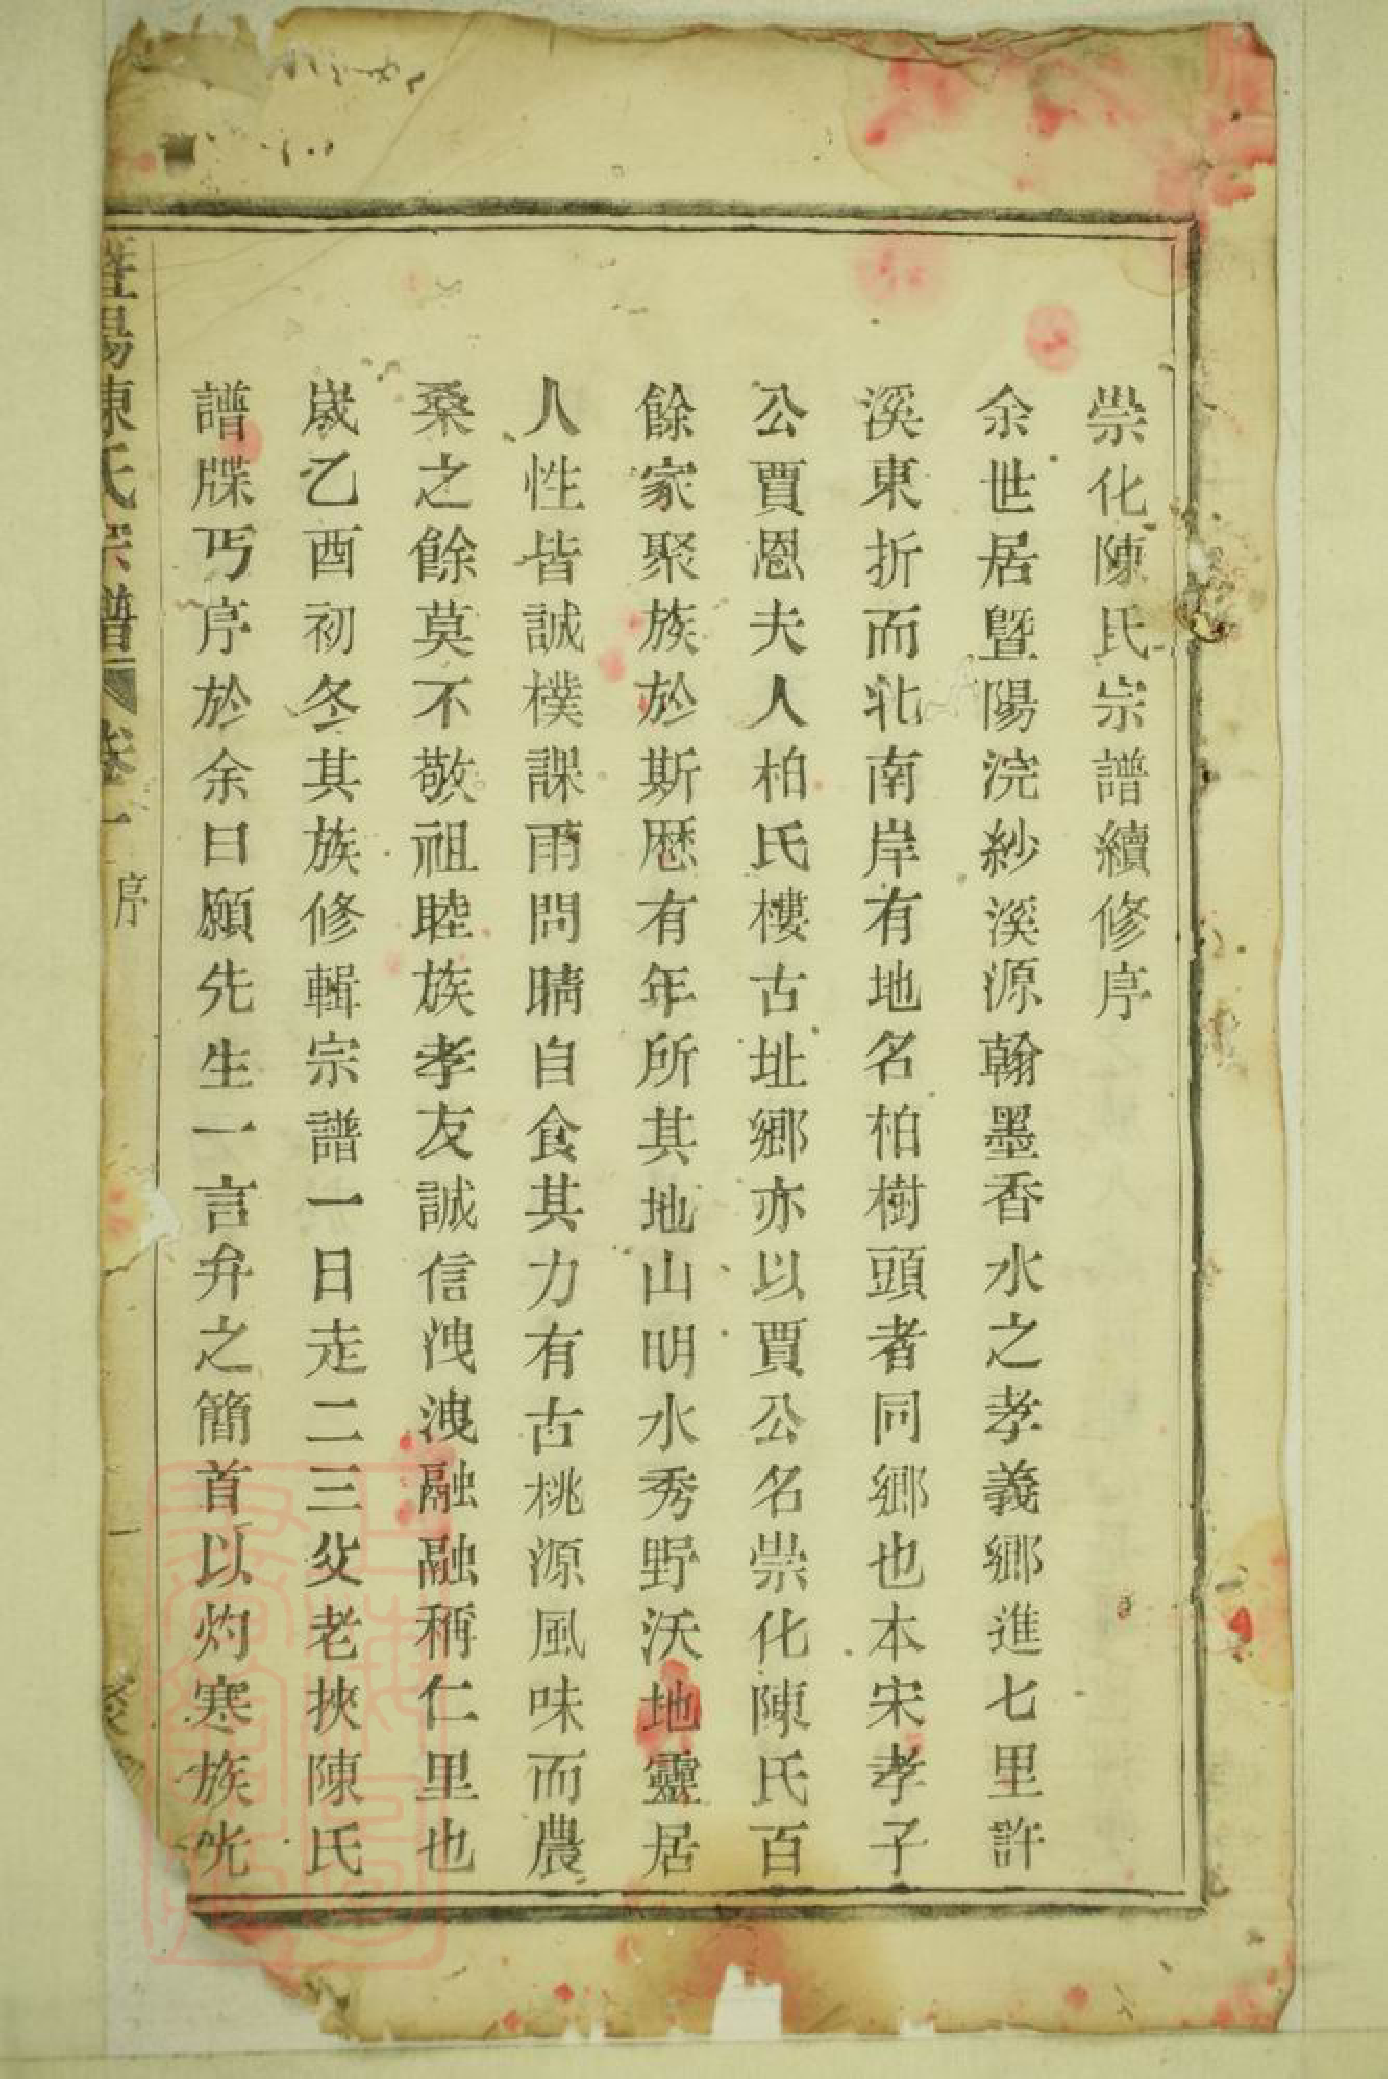 崇化陳氏宗譜續修序
余世居曁陽浣紗溪源翰墨香水之孝義鄉進七里許
溪東折而北南岸有地名柏樹頭者同鄉也本宋孝子
公賈恩夫人柏氏樓古址鄉亦以賈公名崇化陳氏百
餘家聚族於斯歷有年所其地山明水秀野沃地靈居
人性皆誠樸課雨問晴自食其力有古桃源風味而農
桑之餘莫不敬祖睦族孝友誠信洩洩融融稱仁里也
歲乙酉初冬其族修輯宗譜一日走二三父老挾陳氏
譜牒丐序於余曰願先生一言弁之簡首以灼寒族光
暨陽陳氏宗譜 卷一 序